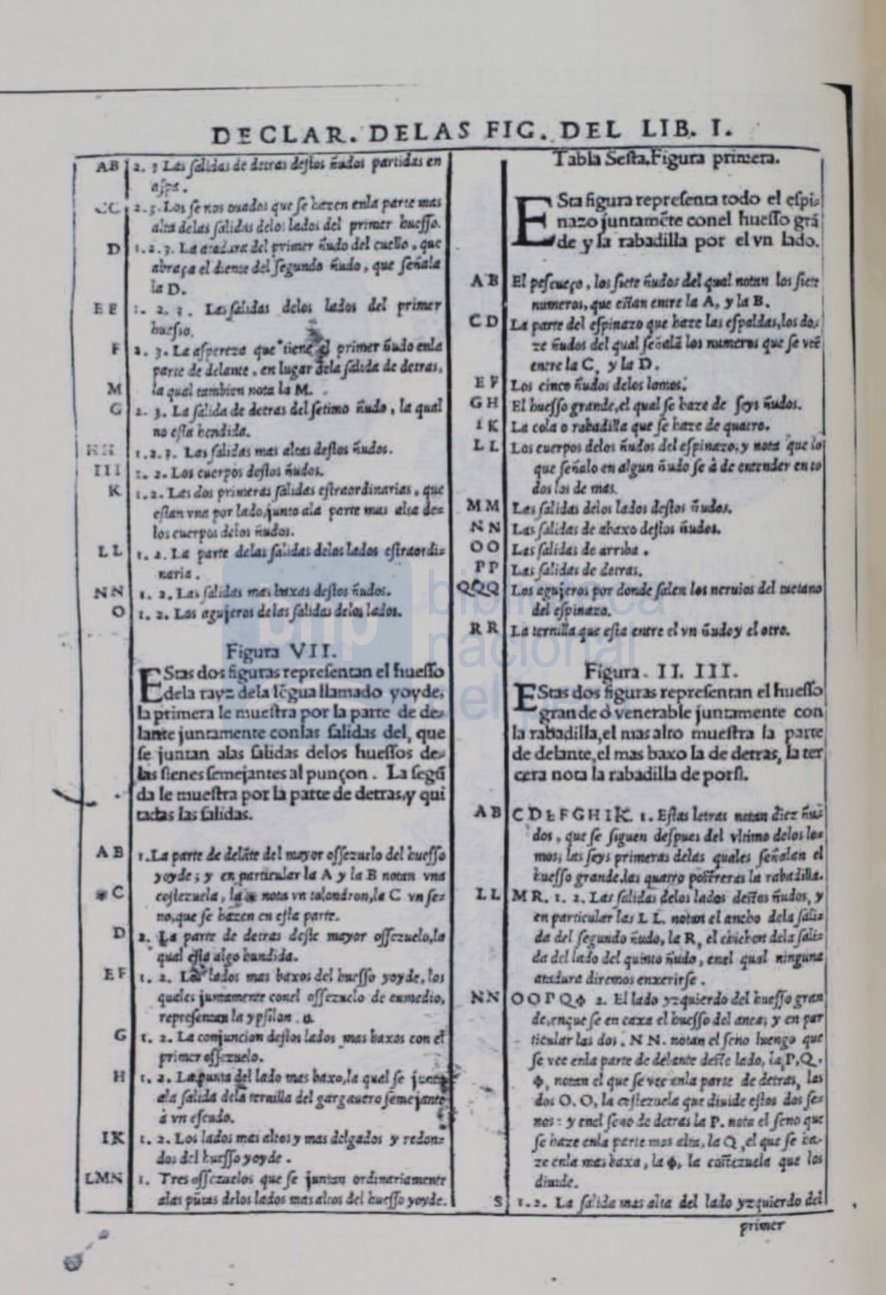 DECLAR. DELAS FIG. DEL LIB. I.
AB 2. 3 Las salidas de detras destos ñudos partidas en
aspa.
CC 2.3. Los senos ouados que se hazen enla parte mas
alta delas salidas delos lados del primer huesso.
D 1.2.3. La atadura del primer ñudo del cuello, que
abraça el diente del segundo ñudo, que señala
la D.
EE 1. 2. 3. Las salidas delos lados del primer
huesso.
F 2. 3. La aspereza que tiene el primer ñudo enla
parte de delante, en lugar dela salida de detras,
M la qual tambien nota la M.
G 2. 3. La salida de detras del setimo ñudo, la qual
no esta hendida.
HH 1.2.3. Las salidas mas altas destos ñudos.
III 1. 2. Los cuerpos destos ñudos.
K 1.2. Las dos primeras salidas estraordinarias, que
estan vna por lado, junto ala parte mas alta de-
los cuerpos delos ñudos.
LL 1. 2. La parte delas salidas delos lados estraordi-
naria.
NN 1. 2. Las salidas mas baxas destos ñudos.
O 1. 2. Los agujeros delas salidas delos lados.
Figura VII.
EStas dos figuras representan el huesso
dela rayz dela lẽgua llamado yoyde,
la primera le muestra por la parte de de-
lante juntamente conlas salidas del, que
se juntan alas salidas delos huessos de-
las sienes semejantes al punçon. La segũ
da le muestra por la parte de detras, y qui
tadas las salidas.
AB 1. La parte de delãte del mayor ossezuelo del huesso
yoyde; y en particular la A y la B notan vna
C costezuela, la nota vn tolondron, la C vn se-
no, que se hazen en esta parte.
D 2. La parte de detras deste mayor ossezuelo, la
qual esta algo hundida.
EF 1. 2. Los lados mas baxos del huesso yoyde, los
quales juntamente conel ossezuelo de enmedio,
representan la ypsilon. υ
G 1. 2. La conjuncion destos lados mas baxos con el
primer ossezuelo.
H 1. 2. La punta del lado mas baxo, la qual se junta
ala salida dela ternilla del gargauero semejante
à vn escudo.
IK 1. 2. Los lados mas altos y mas delgados y redon-
dos del huesso yoyde.
LMN 1. Tres ossezuelos que se juntan ordinariamente
alas pũtas delos lados mas altos del huesso yoyde.
Tabla Sesta. Figura primera.
ESta figura representa todo el espi-
nazo juntamẽte conel huesso grã
de y la rabadilla por el vn lado.
AB El pescueço, los siete ñudos del qual notan los siete
numeros, que estan entre la A, y la B.
CD La parte del espinazo que haze las espaldas, los do-
ze ñudos del qual señalã los numeros que se veẽ
entre la C, y la D.
EF Los cinco ñudos delos lomos.
GH El huesso grande, el qual se haze de seys ñudos.
IK La cola o rabadilla que se haze de quatro.
LL Los cuerpos delos ñudos del espinazo, y nota que lo
que señalo en algun ñudo se à de entender en to
dos los de mas.
MM Las salidas delos lados destos ñudos.
NN Las salidas de abaxo destos ñudos.
OO Las salidas de arriba.
PP Las salidas de detras.
QQQ Los agujeros por donde salen los neruios del tuetano
del espinazo.
RR La ternilla que esta entre el vn ñudo y el otro.
Figura. II. III.
EStas dos figuras representan el huesso
grande ò venerable juntamente con
la rabadilla, el mas alto muestra la parte
de delante, el mas baxo la de detras, la ter
cera nota la rabadilla de por si.
AB CDEFGHIK. 1. Estas letras notan diez ñu-
dos, que se siguen despues del vltimo delos lo-
mos; las seys primeras delas quales señalan el
huesso grande, las quatro postreras la rabadilla.
LL MR. 1. 2. Las salidas delos lados destos ñudos, y
en particular las LL. notan el ancho dela sali-
da del segundo ñudo, la R, el chichon dela sali-
da del lado del quinto ñudo, enel qual ninguna
atadura diremos enxerirse.
NN OOPQΦ 2. El lado yzquierdo del huesso gran
de, enque se en caxa el huesso del anca; y en par
ticular las dos. NN. notan el seno luengo que
se vee enla parte de delante deste lado, la, P, Q.
Φ, notan el que se vee enla parte de detras, las
dos O, O, la costezuela que diuide estos dos se-
nos: y enel seno de detras la P. nota el seno que
se haze enla parte mas alta, la Q, el que se ha-
ze enla mas baxa, la Φ, la costezuela que los
diuide.
S 1.2. La salida mas alta del lado yzquierdo del
primer
bnp biblioteca
nacional
del perú